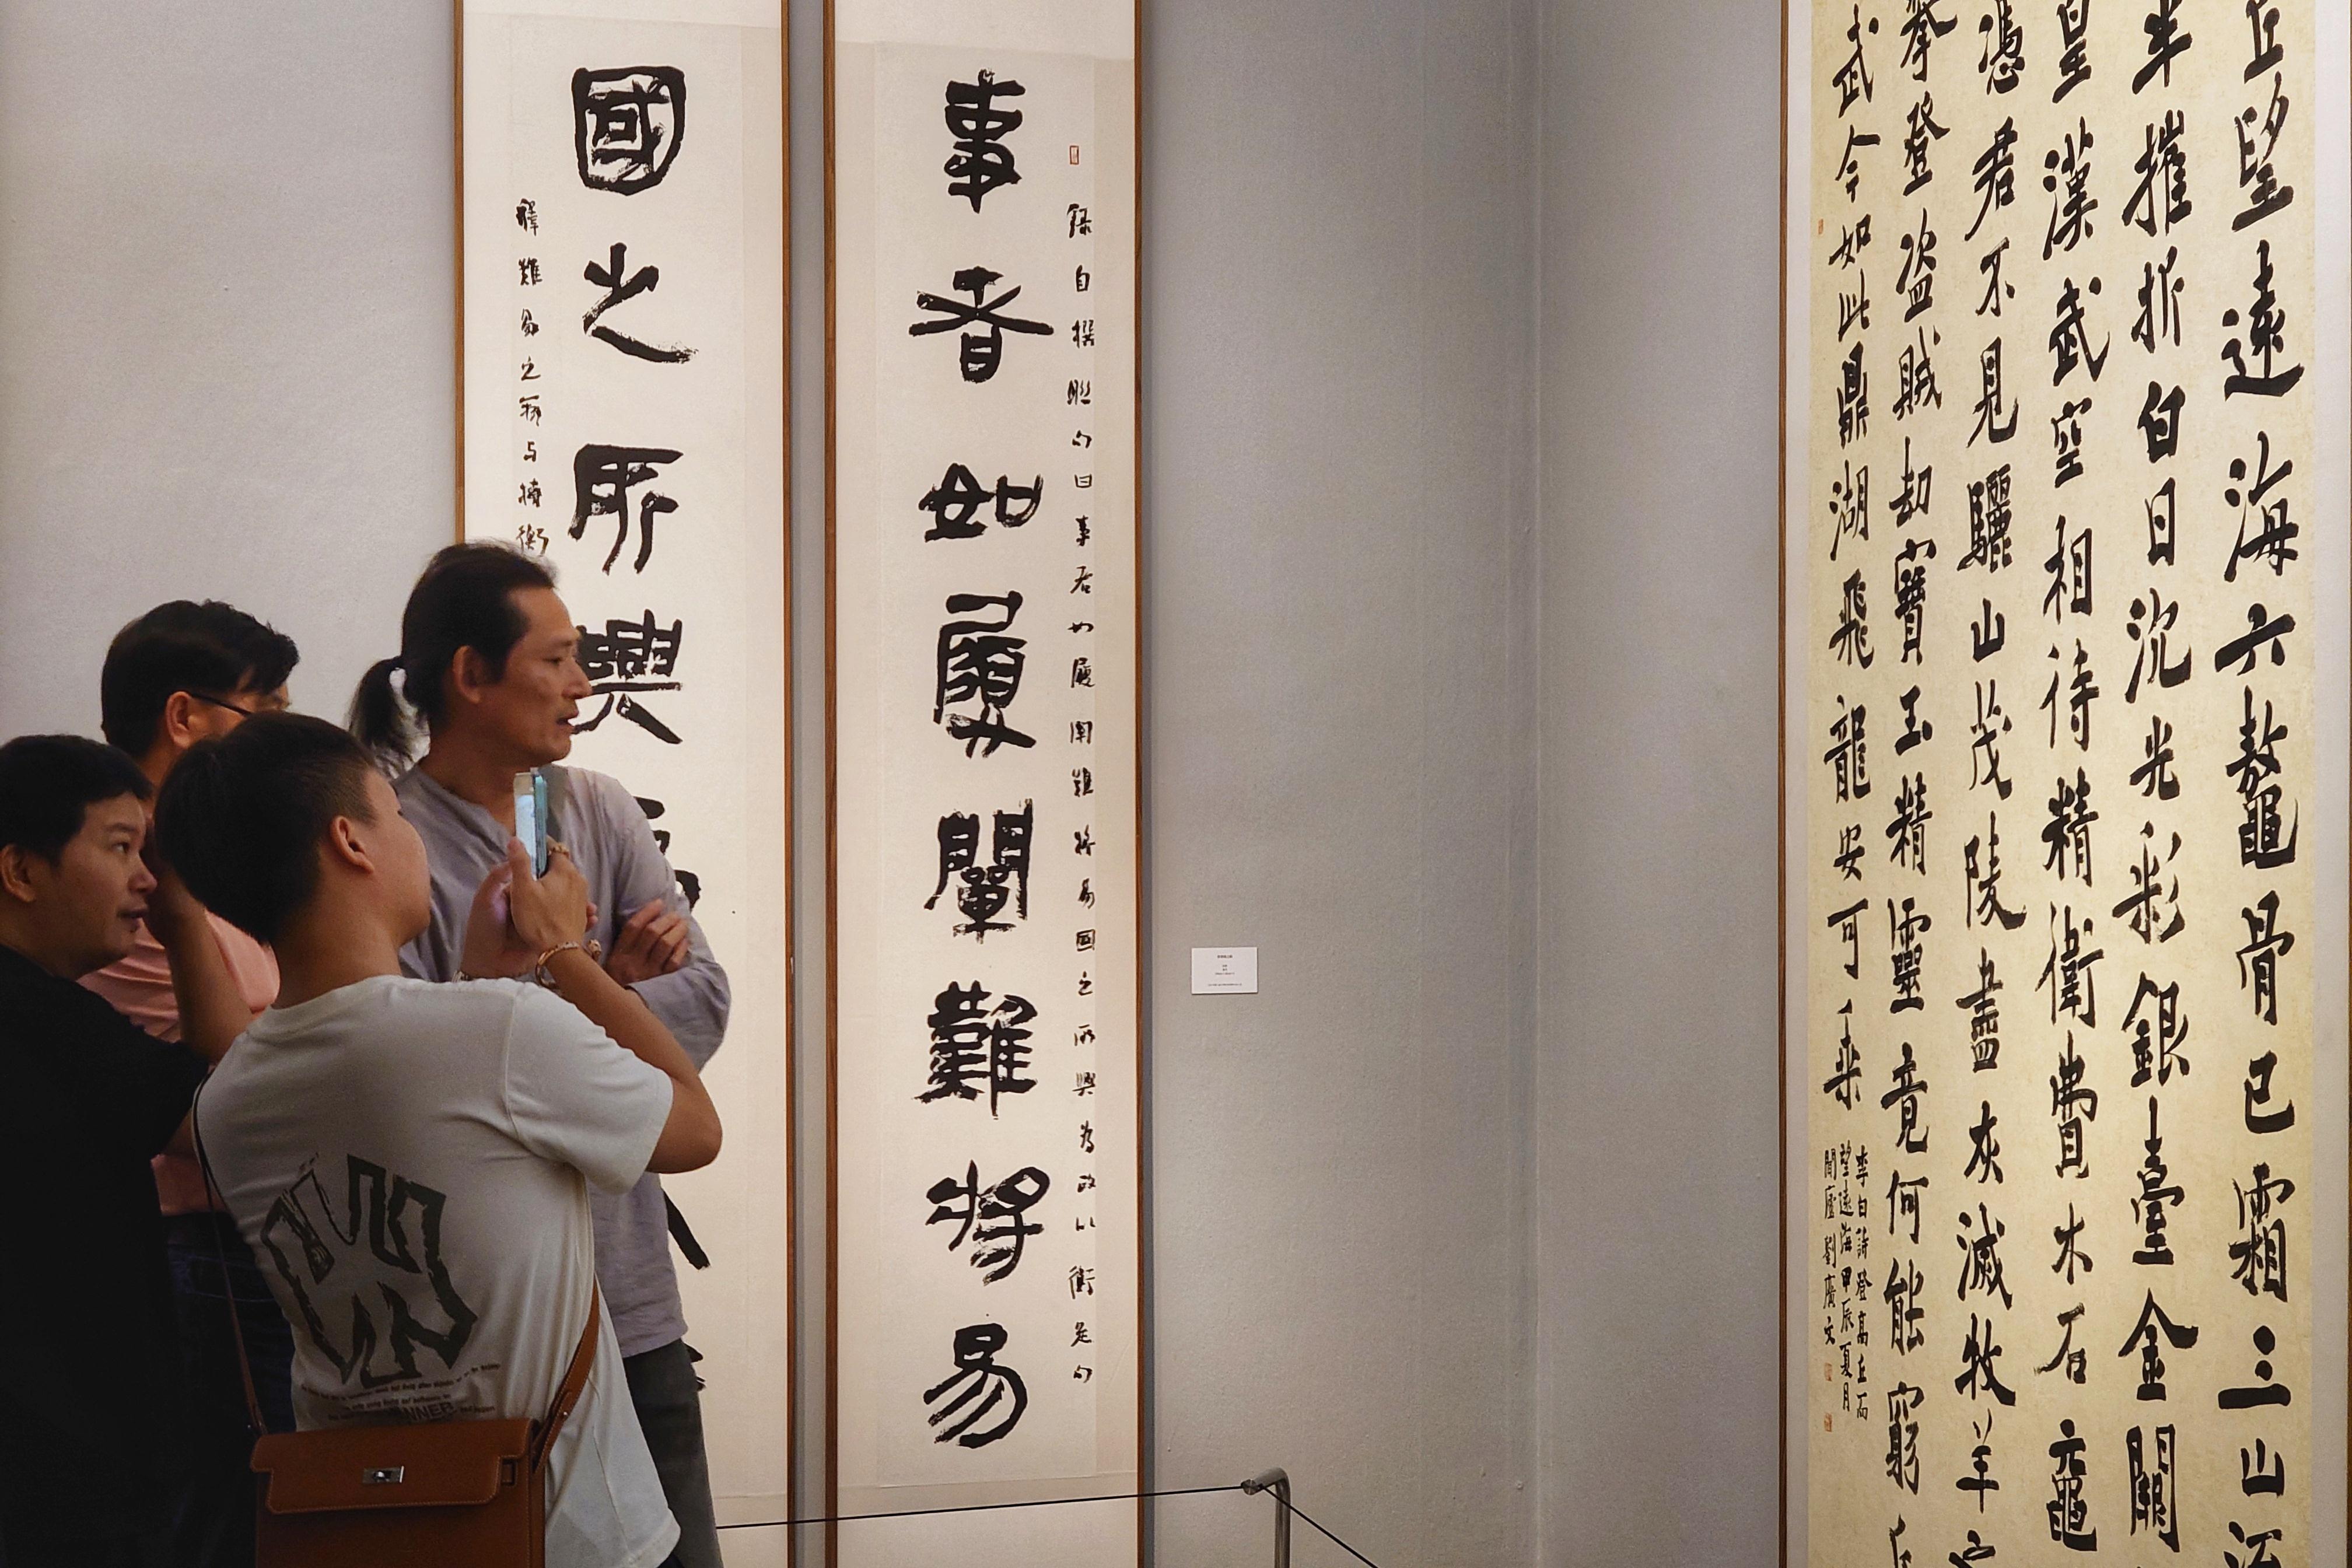 丘望遠海六鰲骨已霜三山流
半摧折白日沉光彩銀臺金闕
皇漢武空相待精衛費木石黿
憑君不見驪山茂陵盡灰滅牧羊
攀登盜賊劫寶玉精靈竟何能窮
武今如此鼎湖飛龍安可乘
李白詩登高丘而
望遠海甲辰夏月
間廬劉廣文
錄自撰聯句曰事者如履闡難將易國之所興為政以衡是句
事者如履闡難將易
國之所興
釋難易之